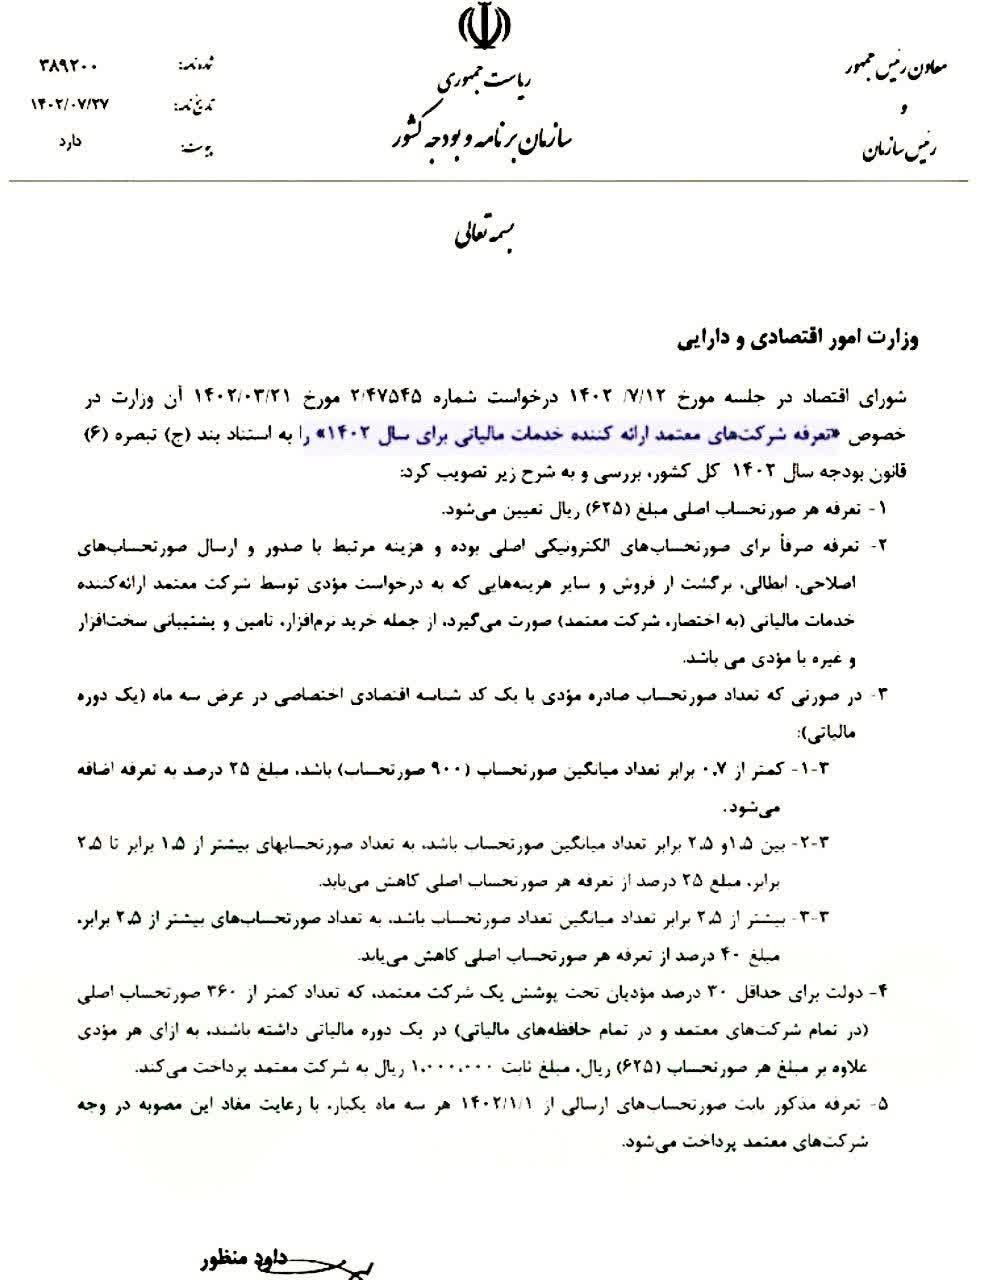 ریاست جمهوری
سازمان برنامه و بودجه کشور
معاون رئیس جمهور
و
رئیس سازمان
شماره نامه: ۳۸۹۲۰۰
تاریخ نامه: ۱۴۰۲/۰۷/۲۷
پیوست: دارد
بسمه تعالی
وزارت امور اقتصادی و دارایی
شورای اقتصاد در جلسه مورخ ۷/۱۲/ ۱۴۰۲ درخواست شماره ۲/۴۷۵۴۵ مورخ ۱۴۰۲/۰۳/۲۱ آن وزارت در
خصوص «تعرفه شرکت‌های معتمد ارائه کننده خدمات مالیاتی برای سال ۱۴۰۲» را به استناد بند (ج) تبصره (۶)
قانون بودجه سال ۱۴۰۲ کل کشور، بررسی و به شرح زیر تصویب کرد:
۱- تعرفه هر صورتحساب اصلی مبلغ (۶۲۵) ریال تعیین می‌شود.
۲- تعرفه صرفاً برای صورتحساب‌های الکترونیکی اصلی بوده و هزینه مرتبط با صدور و ارسال صورتحساب‌های
اصلاحی، ابطالی، برگشت از فروش و سایر هزینه‌هایی که به درخواست مؤدی توسط شرکت معتمد ارائه‌کننده
خدمات مالیاتی (به اختصار، شرکت معتمد) صورت می‌گیرد، از جمله خرید نرم‌افزار، تامین و پشتیبانی سخت‌افزار
و غیره با مؤدی می باشد.
۳- در صورتی که تعداد صورتحساب صادره مؤدی با یک کد شناسه اقتصادی اختصاصی در عرض سه ماه (یک دوره
مالیاتی):
۳-۱- کمتر از ۰٫۷ برابر تعداد میانگین صورتحساب (۹۰۰ صورتحساب) باشد، مبلغ ۲۵ درصد به تعرفه اضافه
می‌شود.
۳-۲- بین ۱٫۵و ۲٫۵ برابر تعداد میانگین صورتحساب باشد، به تعداد صورتحسابهای بیشتر از ۱٫۵ برابر تا ۲٫۵
برابر، مبلغ ۲۵ درصد از تعرفه هر صورتحساب اصلی کاهش می‌یابد.
۳-۳- بیشتر از ۲٫۵ برابر تعداد میانگین تعداد صورتحساب باشد، به تعداد صورتحساب‌های بیشتر از ۲٫۵ برابر،
مبلغ ۴۰ درصد از تعرفه هر صورتحساب اصلی کاهش می‌یابد.
۴- دولت برای حداقل ۳۰ درصد مؤدیان تحت پوشش یک شرکت معتمد، که تعداد کمتر از ۳۶۰ صورتحساب اصلی
(در تمام شرکت‌های معتمد و در تمام حافظه‌های مالیاتی) در یک دوره مالیاتی داشته باشند، به ازای هر مؤدی
علاوه بر مبلغ هر صورتحساب (۶۲۵) ریال، مبلغ ثابت ۱،۰۰۰،۰۰۰ ریال به شرکت معتمد پرداخت می‌کند.
۵- تعرفه مذکور بابت صورتحساب‌های ارسالی از ۱۴۰۲/۱/۱ هر سه ماه یکبار، با رعایت مفاد این مصوبه در وجه
شرکت‌های معتمد پرداخت می‌شود.
داود منظور